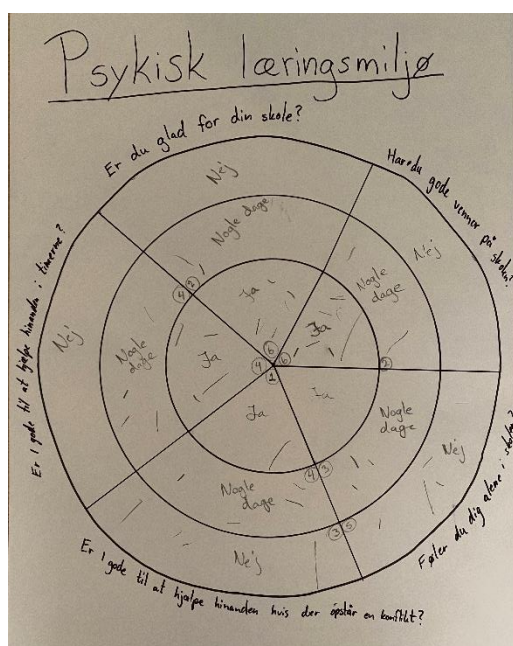 Psykisk læringsmiljø
Er du glad for din skole?
Nej
Nogle dage
Ja
Har du gode venner på skolen?
Nej
Nogle dage
Ja
Føler du dig alene i skolen?
Nej
Nogle dage
Ja
Er I gode til at hjælpe hinanden hvis der opstår en konflikt?
Nej
Nogle dage
Ja
Er I gode til at hjælpe hinanden i timerne?
Nej
Nogle dage
Ja
4 2
6
4
6
1
2
4 3
3 5